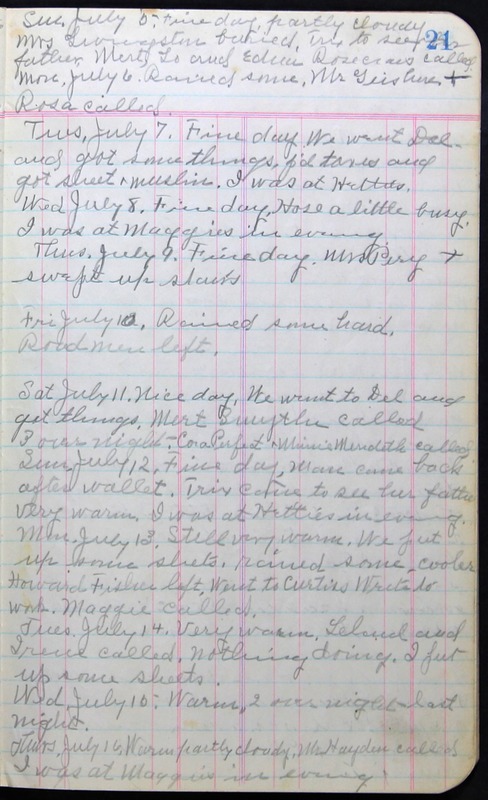 Sun, July 5. Fine day, partly cloudy
21
Mrs Livingston buried, Trix to see her
father, Mert, Lo and Edna Rosecrans called
Mon, July 6. Rained some, Mr Geishen +
Rosa called.
Tues, July 7. Fine day. We went Del-
and got some things, p'd taxes and
got sheet + muslin. I was at Hetties.
Wed July 8. Fine day, Hose a little busy.
I was at Maggies in eveng.
Thus. July 9. Fine day. Mrs Pery +
swept up stairs
Fri July 10. Rained some hard.
Road men left.
Sat July 11. Nice day, We went to Del and
got things, Mert Smythe called
3 over night - Cora Perfect + Minnie Meredith called,
Sun, July 12. Fine day, Man came back
after wallet. Trix came to see her father
very warm. I was at Hetties in eveng.
Mon, July 13, Still very warm. We put
up some sheets, rained some, cooler
Howard Fisher left, Went to Curtiss Write to
work. Maggie called.
Tues. July 14. Very warm, Leland and
Irene called, nothing doing. I put
up some sheets.
Wed, July 15; Warm, 2 over night last
night.
Thurs, July 16, Warm partly cloudy, Mr Hayden called
I was at Maggies in eveng